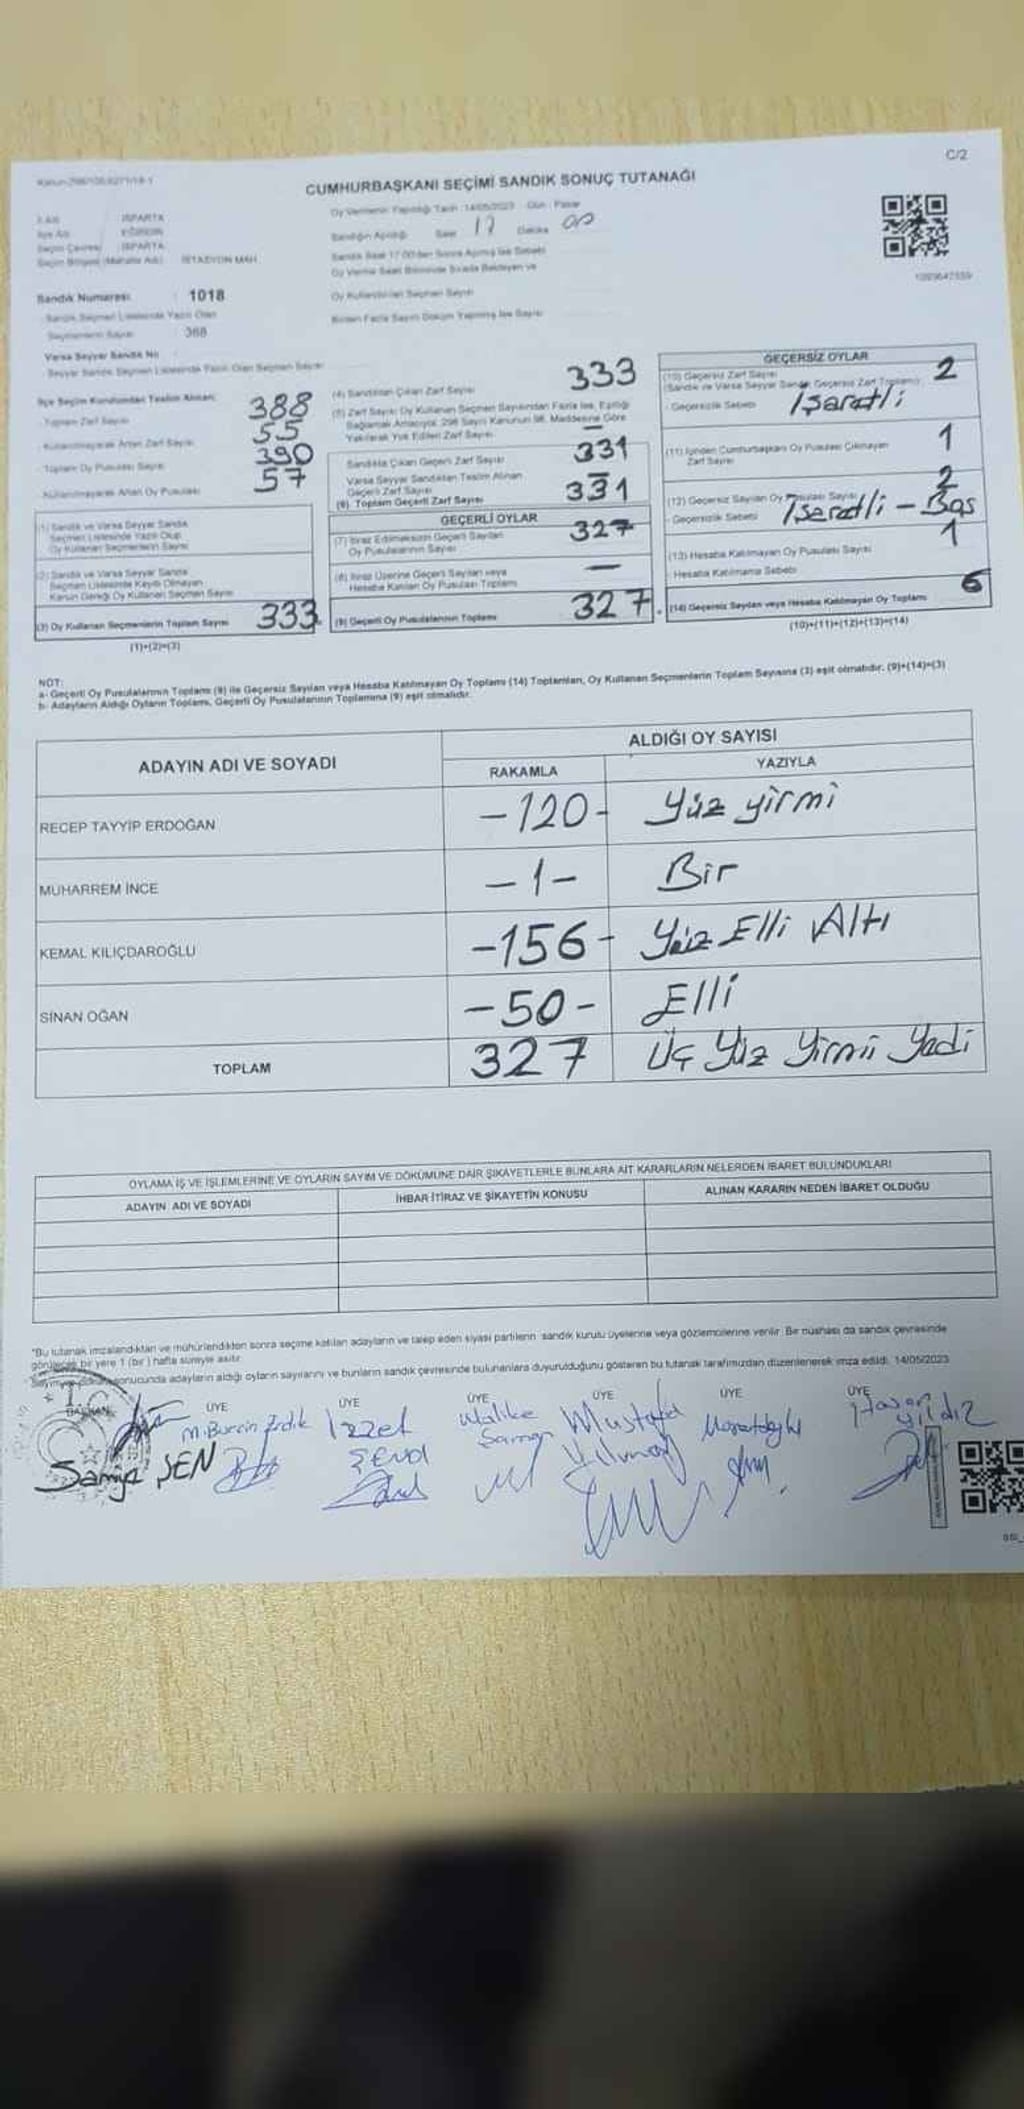 C/2
CUMHURBAŞKANI SEÇİMİ SANDIK SONUÇ TUTANAĞI
Oy Vermenin Yapıldığı Tarih : 14/05/2023 Gün : Pazar
Sandığın Açıldığı Saat 17 Dakika 00
İl Adı ISPARTA
İlçe Adı EĞİRDİR
Seçim Çevresi ISPARTA
Seçim Bölgesi (Mahalle Adı) İSTASYON MAH
Sandık Saat 17:00'den Sonra Açılmış İse Sebebi
Oy Verme Saati Bitiminde Sırada Bekleyen ve
Oy Kullandırılan Seçmen Sayısı
Birden Fazla Sayım Döküm Yapılmış İse Sayısı
Sandık Numarası : 1018
Sandık Seçmen Listesinde Yazılı Olan
Seçmenlerin Sayısı 368
Varsa Seyyar Sandık No
Seyyar Sandık Seçmen Listesinde Yazılı Olan Seçmen Sayısı
İlçe Seçim Kurulundan Teslim Alınan
Toplam Zarf Sayısı 388
Kullanılmayarak Artan Zarf Sayısı 55
Toplam Oy Pusulası Sayısı 390
Kullanılmayarak Artan Oy Pusulası 57
(1) Sandık ve Varsa Seyyar Sandık
Seçmen Listesinde Yazılı Olup
Oy Kullanan Seçmenlerin Sayısı
(2) Sandık ve Varsa Seyyar Sandık
Seçmen Listesinde Kayıtlı Olmayan
Kanun Gereği Oy Kullanan Seçmen Sayısı
(3) Oy Kullanan Seçmenlerin Toplam Sayısı 333
(1)+(2)=(3)
(4) Sandıktan Çıkan Zarf Sayısı 333
(5) Zarf Sayısı Oy Kullanan Seçmen Sayısından Fazla İse, Eşitliği
Sağlamak Amacıyla, 298 Sayılı Kanunun 98. Maddesine Göre
Yakılarak Yok Edilen Zarf Sayısı –
Sandıkta Çıkan Geçerli Zarf Sayısı 331
Varsa Seyyar Sandıktan Teslim Alınan
Geçerli Zarf Sayısı –
(6) Toplam Geçerli Zarf Sayısı 331
GEÇERLİ OYLAR
(7) İtiraz Edilmeksizin Geçerli Sayılan
Oy Pusulalarının Sayısı 327
(8) İtiraz Üzerine Geçerli Sayılan veya
Hesaba Katılan Oy Pusulası Toplamı —
(9) Geçerli Oy Pusulalarının Toplamı 327
GEÇERSİZ OYLAR
(10) Geçersiz Zarf Sayısı 2
(Sandık ve Varsa Seyyar Sandık Geçersiz Zarf Toplamı)
Geçersizlik Sebebi İşaretli
(11) İçinden Cumhurbaşkanı Oy Pusulası Çıkmayan
Zarf Sayısı 1
(12) Geçersiz Sayılan Oy Pusulası Sayısı 2
Geçersizlik Sebebi İşaretli - Boş
(13) Hesaba Katılmayan Oy Pusulası Sayısı 1
Hesaba Katılmama Sebebi
(14) Geçersiz Sayılan veya Hesaba Katılmayan Oy Toplamı 6
(10)+(11)+(12)+(13)=(14)
NOT:
a- Geçerli Oy Pusulalarının Toplamı (9) ile Geçersiz Sayılan veya Hesaba Katılmayan Oy Toplamı (14) Toplamları, Oy Kullanan Seçmenlerin Toplam Sayısına (3) eşit olmalıdır. (9)+(14)=(3)
b- Adayların Aldığı Oyların Toplamı, Geçerli Oy Pusulalarının Toplamına (9) eşit olmalıdır.
ADAYIN ADI VE SOYADI
ALDIĞI OY SAYISI
RAKAMLA YAZIYLA
RECEP TAYYİP ERDOĞAN -120- Yüz yirmi
MUHARREM İNCE -1- Bir
KEMAL KILIÇDAROĞLU -156- Yüz Elli Altı
SİNAN OĞAN -50- Elli
TOPLAM 327 Üç Yüz Yirmi Yedi
OYLAMA İŞ VE İŞLEMLERİNE VE OYLARIN SAYIM VE DÖKÜMÜNE DAİR ŞİKAYETLERLE BUNLARA AİT KARARLARIN NELERDEN İBARET BULUNDUKLARI
ADAYIN ADI VE SOYADI İHBAR İTİRAZ VE ŞİKAYETİN KONUSU ALINAN KARARIN NEDEN İBARET OLDUĞU
*Bu tutanak imzalandıktan ve mühürlendikten sonra seçime katılan adayların ve talep eden siyasi partilerin sandık kurulu üyelerine veya gözlemcilerine verilir. Bir nüshası da sandık çevresinde
görülecek bir yere 1 (bir) hafta süreyle asılır.
sonucunda adayların aldığı oyların sayılarını ve bunların sandık çevresinde bulunanlara duyurulduğunu gösteren bu tutanak tarafımızdan düzenlenerek imza edildi. 14/05/2023
BAŞKAN ÜYE ÜYE ÜYE ÜYE ÜYE ÜYE
ŞEN
İzzet
Mustafa
Yılmaz
Hasan
Yıldız